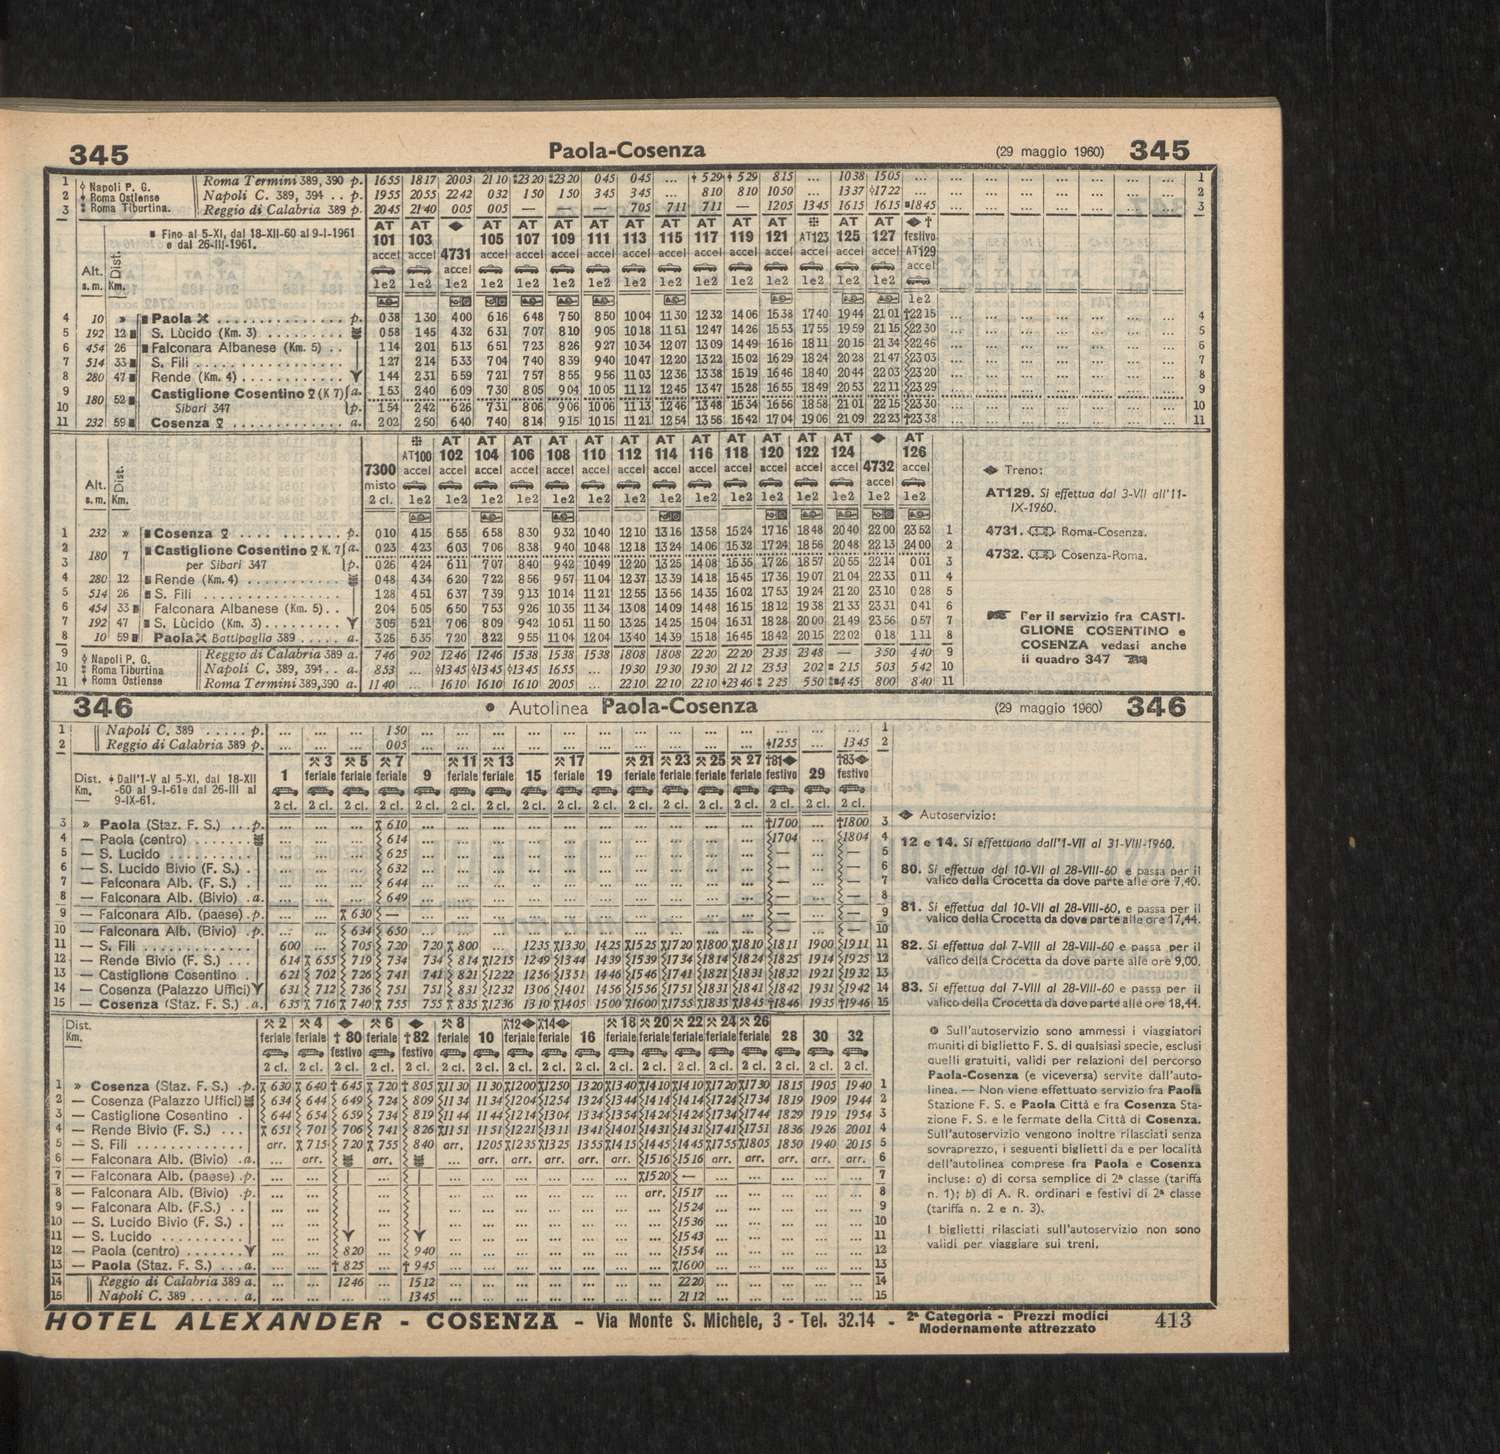 345 Paola-Cosenza (29 maggio 1960) 345
1 Roma Termini 389, 390 p. 1655 1817 2003 2110 2320 2320 045 045 ... 529 529 815 ... 1038 1505 ... 1
2 Napoli P. G. Napoli C. 389, 394 . . p. 1955 2055 2242 032 150 150 345 345 ... 810 810 1050 ... 1337 1722 ... 2
Roma Ostiense
3 Roma Tiburtina. Reggio di Calabria 389 p. 2045 2140 005 005 — — — 705 711 711 — 1205 1345 1615 1615 1845 3
Fino al 5-XI, dal 18-XII-60 al 9-I-1961
e dal 26-III-1961.
AT AT AT AT AT AT AT AT AT AT AT AT AT †
101 103 4731 105 107 109 111 113 115 117 119 121 AT123 125 127 festivo AT129
accel accel accel accel accel accel accel accel accel accel accel accel accel accel accel accel
Alt. s. m. Dist. Km. 1e2 1e2 1e2 1e2 1e2 1e2 1e2 1e2 1e2 1e2 1e2 1e2 1e2 1e2 1e2 1e2
4 10 » Paola p. 038 130 400 616 648 750 850 1004 1130 1232 1406 1538 1740 1944 2101 †2215 4
5 192 12 S. Lùcido (Km. 3) 058 145 432 631 707 810 905 1018 1151 1247 1426 1553 1755 1959 2115 2230 5
6 454 26 Falconara Albanese (Km. 5) . . 114 201 513 651 723 826 927 1034 1207 1309 1449 1616 1811 2016 2134 2246 6
7 514 33 S. Fili 127 214 533 704 740 839 940 1047 1220 1322 1502 1629 1824 2028 2147 2303 7
8 280 47 Rende (Km. 4) 144 231 559 721 757 855 956 1103 1236 1338 1519 1646 1840 2044 2203 2320 8
9 180 52 Castiglione Cosentino (K 7) a. 153 240 609 730 805 904 1005 1112 1245 1347 1528 1655 1849 2053 2211 2329 9
10 Sibari 347 p. 154 242 626 731 806 906 1006 1113 1246 1348 1534 1656 1858 2101 2215 2330 10
11 232 59 Cosenza a. 202 250 640 740 814 915 1015 1121 1254 1356 1542 1704 1906 2109 2223 †2338 11
AT AT AT AT AT AT AT AT AT AT AT AT AT
7300 AT100 102 104 106 108 110 112 114 116 118 120 122 124 4732 126
misto accel accel accel accel accel accel accel accel accel accel accel accel accel accel accel
Alt. s. m. Dist. Km. 2 cl. 1e2 1e2 1e2 1e2 1e2 1e2 1e2 1e2 1e2 1e2 1e2 1e2 1e2 1e2 1e2
1 232 » Cosenza p. 010 415 555 658 830 932 1040 1210 1316 1358 1524 1716 1848 2040 2200 2352 1
2 180 7 Castiglione Cosentino K. 7 a. 023 423 603 706 838 940 1048 1218 1324 1406 1532 1724 1856 2048 2213 2400 2
3 per Sibari 347 p. 026 424 611 707 840 942 1049 1220 1325 1408 1535 1726 1857 2055 2214 001 3
4 280 12 Rende (Km. 4) 048 434 620 722 856 957 1104 1237 1339 1418 1545 1736 1907 2104 2233 011 4
5 514 26 S. Fili 128 451 637 739 913 1014 1121 1255 1356 1435 1602 1753 1924 2120 2310 028 5
6 454 33 Falconara Albanese (Km. 5) . . 204 505 650 753 926 1035 1134 1308 1409 1448 1615 1812 1938 2133 2331 041 6
7 192 47 S. Lùcido (Km. 3) 305 521 706 809 942 1051 1150 1325 1425 1504 1631 1828 2000 2149 2356 057 7
8 10 59 Paola Battipaglia 389 a. 326 535 720 822 955 1104 1204 1340 1439 1518 1645 1842 2015 2202 018 111 8
9 Reggio di Calabria 389 a. 746 902 1246 1246 1538 1538 1538 1808 1808 2220 2220 2335 2348 — 350 440 9
10 Napoli P. G. Napoli C. 389, 394. . a. 853 ... 1345 1345 1345 1655 1930 1930 1930 2112 2353 202 215 503 542 10
Roma Tiburtina
11 Roma Ostiense Roma Termini 389,390 a. 1140 ... 1610 1610 1610 2005 ... 2210 2210 2210 2346 225 550 445 800 840 11
Treno:
AT129. Si effettua dal 3-VII all'11-
IX-1960.
4731. Roma-Cosenza.
4732. Cosenza-Roma.
Per il servizio fra CASTI-
GLIONE COSENTINO e
COSENZA vedasi anche
il quadro 347
346 Autolinea Paola-Cosenza (29 maggio 1960) 346
1 Napoli C. 389 p. ... ... ... 150 ... ... ... ... ... ... ... ... ... ... ... ... ... 1
2 Reggio di Calabria 389 p. ... ... ... 005 ... ... ... ... ... ... ... ... ... ... 1255 ... 1345 2
Dist. Km. Dall'1-V al 5-XI, dal 18-XII
-60 al 9-I-61e dal 26-III al
9-IX-61.
1 3 5 7 9 11 13 15 17 19 21 23 25 27 †81 29 †83
feriale feriale feriale feriale feriale feriale feriale feriale feriale feriale festivo festivo
2 cl. 2 cl. 2 cl. 2 cl. 2 cl. 2 cl. 2 cl. 2 cl. 2 cl. 2 cl. 2 cl. 2 cl. 2 cl. 2 cl. 2 cl. 2 cl. 2 cl.
3 » Paola (Staz. F. S.) . . . p. ... ... ... 610 ... ... ... ... ... ... ... ... ... ... †1700 ... †1800 3
4 — Paola (centro) ... ... ... 614 ... ... ... ... ... ... ... ... ... ... 1704 ... 1804 4
5 — S. Lucido ... ... ... 625 ... ... ... ... ... ... ... ... ... ... — ... — 5
6 — S. Lucido Bivio (F. S.) . ... ... ... 632 ... ... ... ... ... ... ... ... ... ... — ... — 6
7 — Falconara Alb. (F. S.) . ... ... ... 644 ... ... ... ... ... ... ... ... ... ... — ... — 7
8 — Falconara Alb. (Bivio) . a. ... ... ... 649 ... ... ... ... ... ... ... ... ... ... — ... — 8
9 — Falconara Alb. (paese) . p. ... ... 630 — ... ... ... ... ... ... ... ... ... ... — ... — 9
10 — Falconara Alb. (Bivio) . p. ... ... 634 650 ... ... ... ... ... ... ... ... ... ... — ... — 10
11 — S. Fili 600 ... 705 720 720 800 ... 1235 1330 1425 1525 1720 1800 1810 1811 1900 1911 11
12 — Rende Bivio (F. S.) 614 655 719 734 734 814 1215 1249 1344 1439 1539 1734 1814 1824 1825 1914 1925 12
13 — Castiglione Cosentino . 621 702 726 741 741 821 1222 1256 1351 1446 1546 1741 1821 1831 1832 1921 1932 13
14 — Cosenza (Palazzo Uffici) 631 712 736 751 751 831 1232 1306 1401 1456 1556 1751 1831 1841 1842 1931 1942 14
15 — Cosenza (Staz. F. S.) . a. 635 716 740 755 755 835 1236 1310 1405 1500 1600 1755 1835 1845 †1846 1935 †1946 15
Dist. Km. 2 4 † 80 6 † 82 8 10 12 14 16 18 20 22 24 26 28 30 32
feriale feriale festivo feriale festivo feriale feriale feriale feriale feriale feriale feriale feriale
2 cl. 2 cl. 2 cl. 2 cl. 2 cl. 2 cl. 2 cl. 2 cl. 2 cl. 2 cl. 2 cl. 2 cl. 2 cl. 2 cl. 2 cl. 2 cl. 2 cl. 2 cl.
1 » Cosenza (Staz. F. S.) . p. 630 640 † 645 720 † 805 1130 1130 1200 1250 1320 1340 1410 1410 1720 1730 1815 1905 1940 1
2 — Cosenza (Palazzo Uffici) 634 644 649 724 809 1134 1134 1204 1254 1324 1344 1414 1414 1724 1734 1819 1909 1944 2
3 — Castiglione Cosentino . 644 654 659 734 819 1144 1144 1214 1304 1334 1354 1424 1424 1734 1744 1829 1919 1954 3
4 — Rende Bivio (F. S.) . . . 651 701 706 741 826 1151 1151 1221 1311 1341 1401 1431 1431 1741 1751 1836 1926 2001 4
5 — S. Fili arr. 715 720 755 840 arr. 1205 1235 1325 1355 1415 1445 1445 1755 1805 1850 1940 2015 5
6 — Falconara Alb. (Bivio) . a. ... arr. arr. ... arr. arr. arr. arr. arr. 1516 1516 arr. arr. arr. arr. arr. 6
7 — Falconara Alb. (paese) . p. ... ... ... ... ... ... ... ... ... 1520 — ... ... ... ... ... 7
8 — Falconara Alb. (Bivio) . p. ... ... ... ... ... ... ... ... ... arr. 1517 ... ... ... ... ... 8
9 — Falconara Alb. (F.S.) . ... ... ... ... ... ... ... ... ... ... 1524 ... ... ... ... ... 9
10 — S. Lucido Bivio (F. S.) . ... ... ... ... ... ... ... ... ... ... 1536 ... ... ... ... ... 10
11 — S. Lucido ... ... ... ... ... ... ... ... ... ... 1543 ... ... ... ... ... 11
12 — Paola (centro) ... ... 820 ... 940 ... ... ... ... ... ... ... 1554 ... ... ... ... ... 12
13 — Paola (Staz. F. S.) . . . a. ... ... † 825 ... † 945 ... ... ... ... ... ... ... 1600 ... ... ... ... ... 13
14 Reggio di Calabria 389 a. ... ... 1246 ... 1512 ... ... ... ... ... ... ... 2220 ... ... ... ... ... 14
15 Napoli C. 389 a. ... ... ... ... 1345 ... ... ... ... ... ... ... 2112 ... ... ... ... ... 15
Autoservizio:
12 e 14. Si effettuano dall'1-VII al 31-VIII-1960.
80. Si effettua dal 10-VII al 28-VIII-60 e passa per il
valico della Crocetta da dove parte alle ore 7,40.
81. Si effettua dal 10-VII al 28-VIII-60, e passa per il
valico della Crocetta da dove parte alle ore 17,44.
82. Si effettua dal 7-VIII al 28-VIII-60 e passa per il
valico della Crocetta da dove parte alle ore 9,00.
83. Si effettua dal 7-VIII al 28-VIII-60 e passa per il
valico della Crocetta da dove parte alle ore 18,44.
Sull'autoservizio sono ammessi i viaggiatori
muniti di biglietto F. S. di qualsiasi specie, esclusi
quelli gratuiti, validi per relazioni del percorso
Paola-Cosenza (e viceversa) servite dall'auto-
linea. — Non viene effettuato servizio fra Paola
Stazione F. S. e Paola Città e fra Cosenza Sta-
zione F. S. e le fermate della Città di Cosenza.
Sull'autoservizio vengono inoltre rilasciati senza
sovraprezzo, i seguenti biglietti da e per località
dell'autolinea comprese fra Paola e Cosenza
incluse: a) di corsa semplice di 2ª classe (tariffa
n. 1); b) di A. R. ordinari e festivi di 2ª classe
(tariffa n. 2 e n. 3).
I biglietti rilasciati sull'autoservizio non sono
validi per viaggiare sui treni.
HOTEL ALEXANDER - COSENZA - Via Monte S. Michele, 3 - Tel. 32.14 - 2ª Categoria - Prezzi modici
Modernamente attrezzato
413